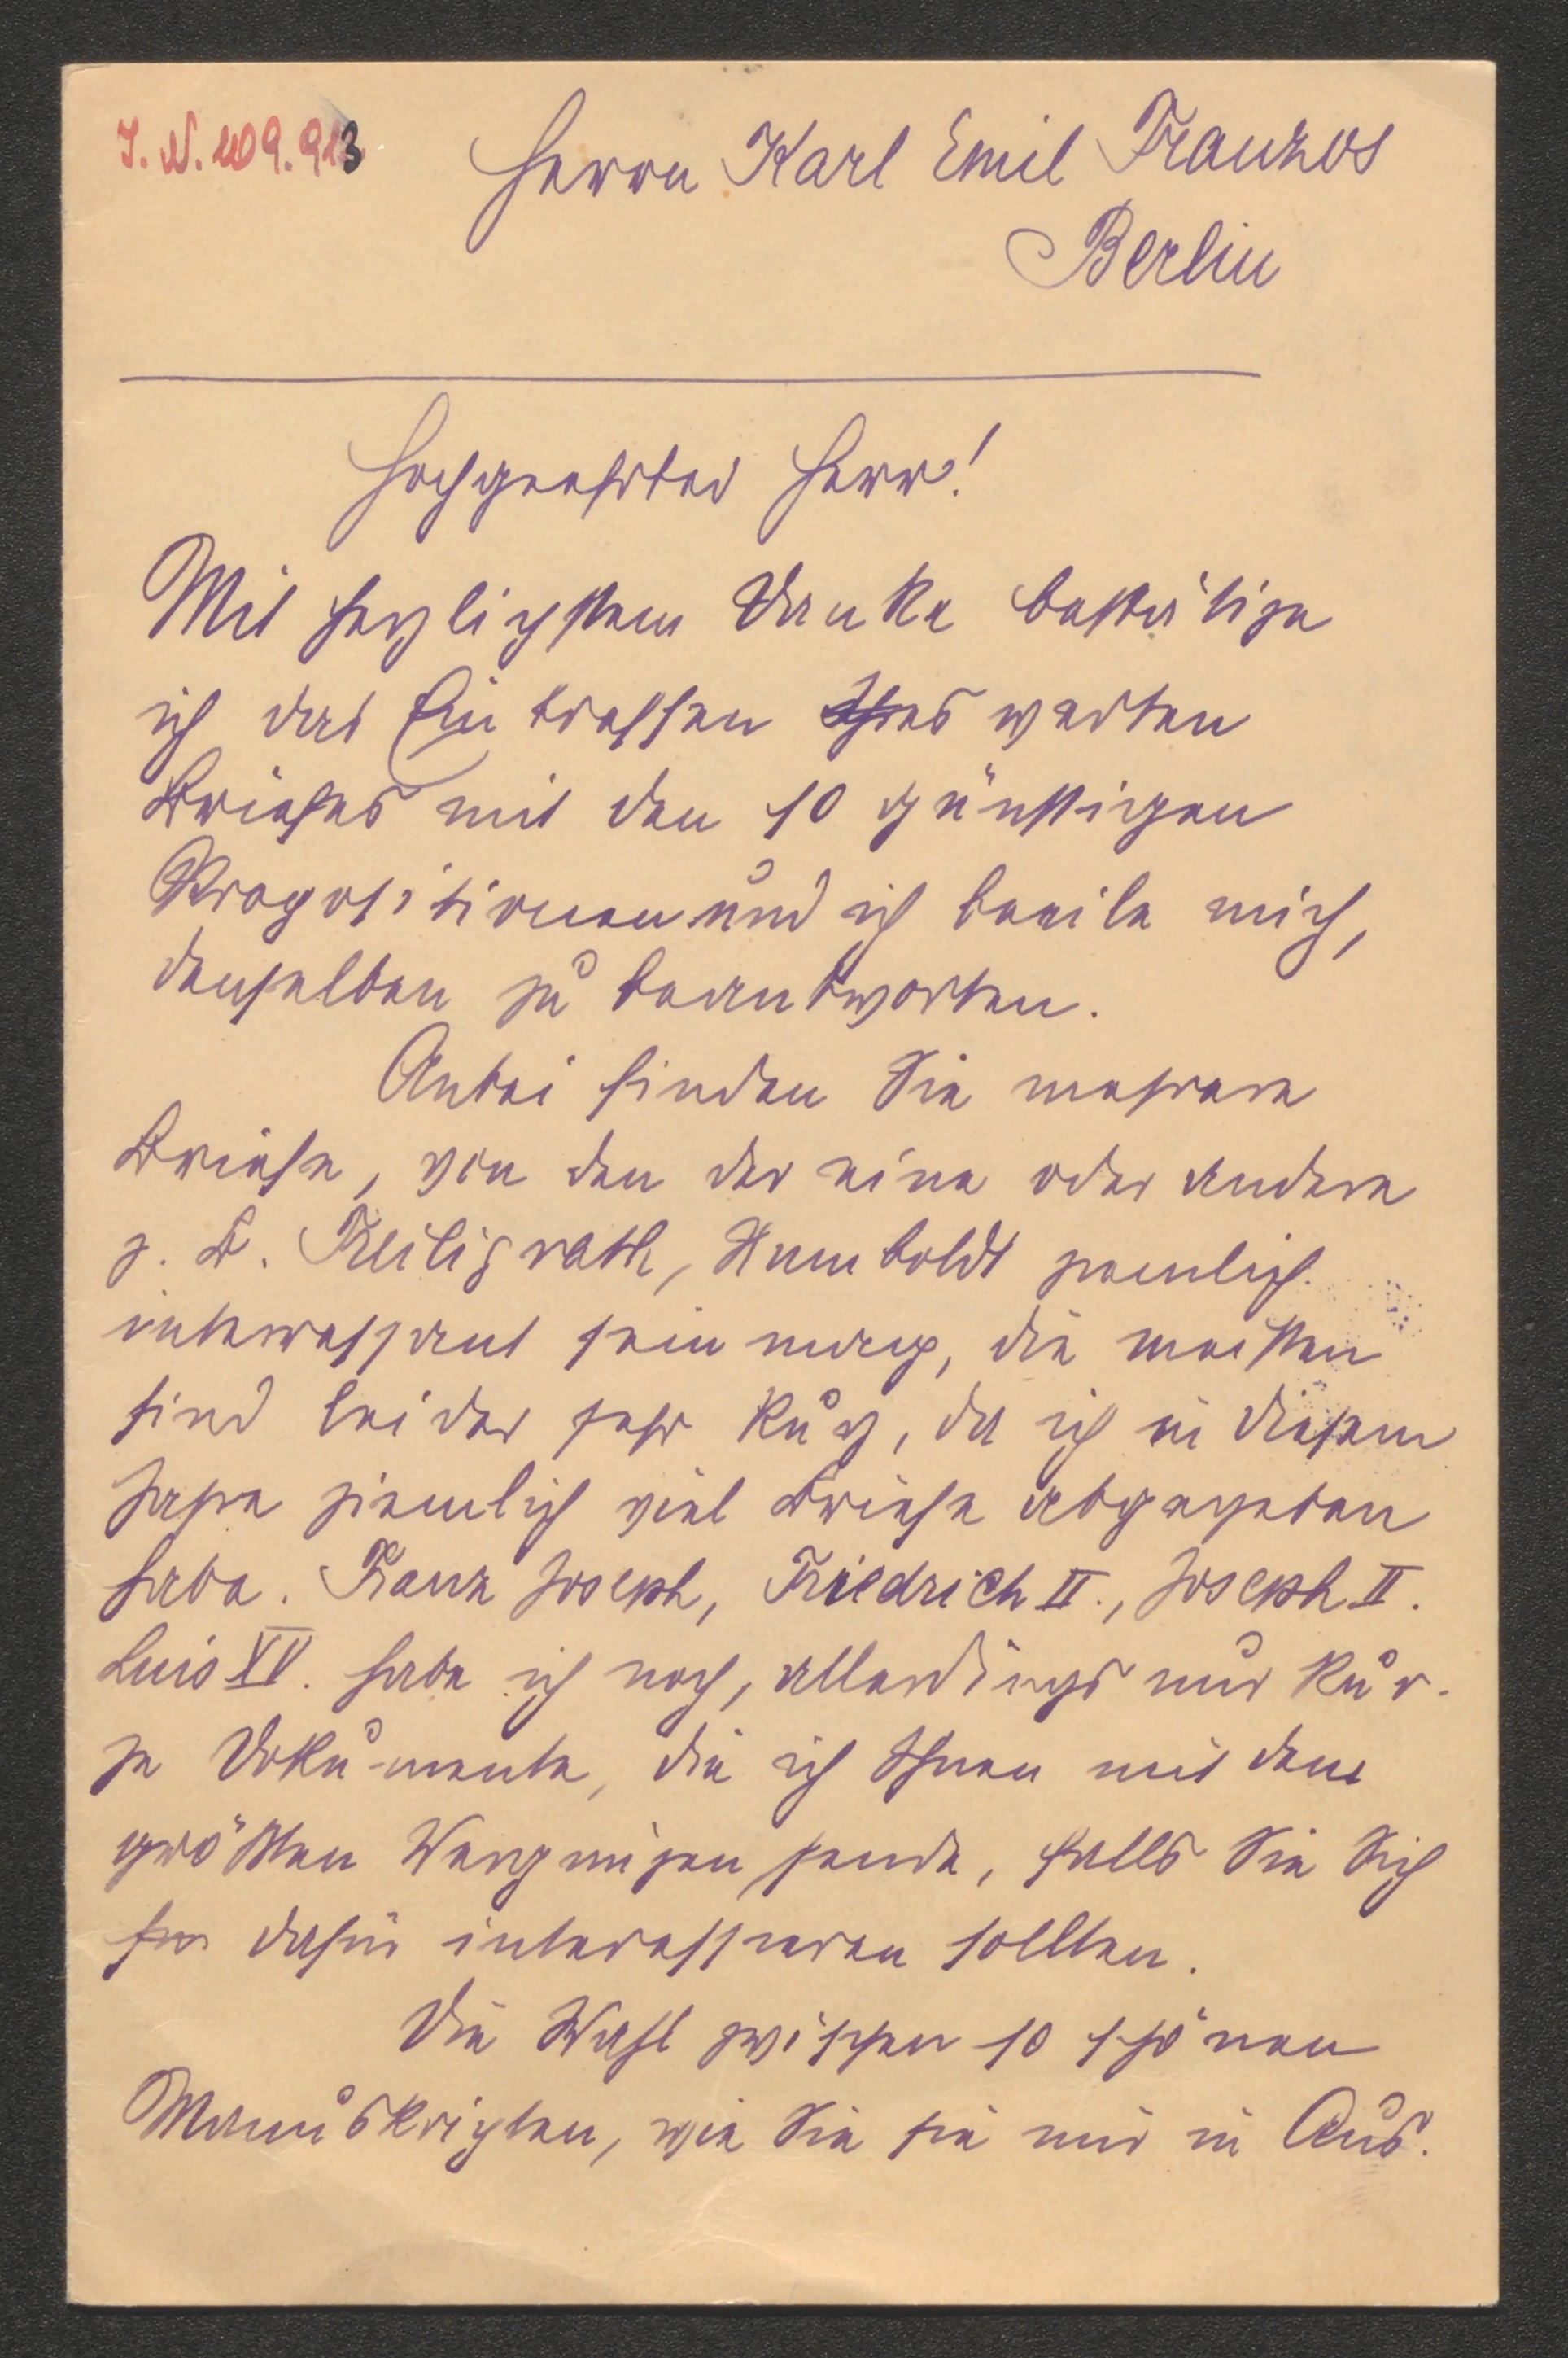 J. N. 109.913
Herrn Karl Emil Franzos
Berlin
Hochgeehrter Herr!
Mit herzlichstem Danke bestätige
ich das Eintreffen Ihres werten
Briefes mit den so günstigen
Propositionen und ich beeile mich,
denselben zu beantworten.
Anbei finden Sie mehrere
Briefe, von den der eine oder andere
z. B. Freiligrath, Humboldt ziemlich
interessant sein mag, die meisten
sind leider sehr kurz, da ich in diesem
Jahre ziemlich viel Briefe abgegeben
habe. Franz Joseph, Friedrich II., Joseph II.
Luis XV. habe ich noch, allerdings nur kur-
ze Dokumente, die ich Ihnen mit dem
größten Vergnügen sende, falls Sie Sich
dafür interessieren sollten.
Die Wahl zwischen so schönen
Manuskripten, wie Sie sie mir in Aus-